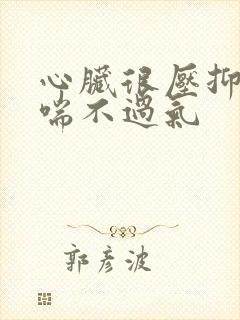 心臟很壓抑
喘不過氣
郭彥波